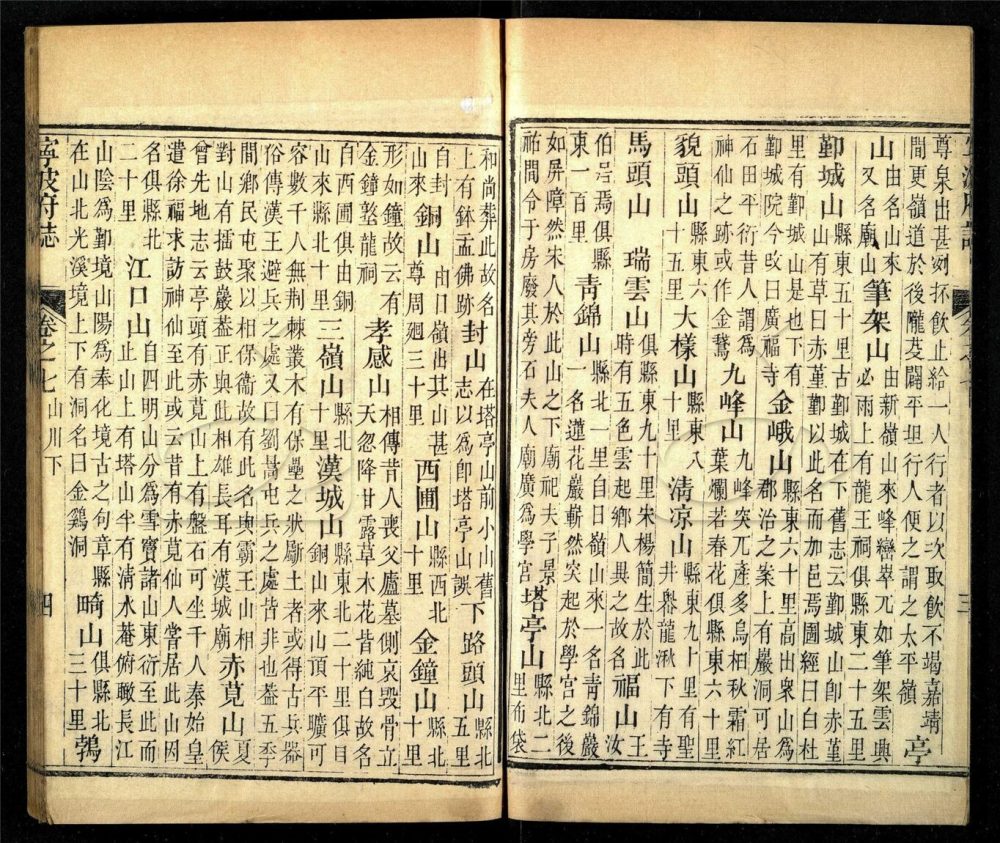 尊泉出甚冽抔飲止給一人行者以次取飲不竭嘉靖
間更嶺道於後隴芟闢平坦行人便之謂之太平嶺 亭
山 由名山來又名廟山 筆架山 由新嶺山來峰巒崒兀如筆架雲興必雨上有龍王祠俱縣東二十五里
鄞城山 縣東五十里古鄞城在下舊志云鄞城山卽赤堇山有草曰赤堇鄞以此名而加邑焉圖經曰白杜
里有鄞城山是也下有鄞城院今改曰廣福寺 金峨山 縣東六十里高出衆山爲郡治之案上有巖洞可居
石田平衍昔人謂爲神仙之跡或作金鵞 九峰山 九峰突兀產多烏桕秋霜紅葉爛若春花俱縣東六十里
貌頭山 縣東六十五里 大樣山 縣東八十里 清凉山 縣東九十里有聖井舉龍湫下有寺
馬頭山 瑞雲山 俱縣東九十里宋楊簡生於此時有五色雲起鄉人異之故名 福山 王汝
伯㠯焉俱縣東一百里 青錦山 縣北一里自日嶺山來一名青錦巖一名蓮花巖嶄然突起於學宮之後
如屏障然宋人於此山之下廟祀夫子景祐間令于房廢其旁石夫人廟廣爲學宮 塔亭山 縣北二里布袋
和尚葬此故名上有鉢盂佛跡 封山 在塔亭山前小山舊志以爲卽塔亭山誤 下路頭山 縣北五里
自封山來 銅山 由日嶺出其山甚尊周廻三十里 西圃山 縣西北十里 金鐘山 縣北十里
形如鐘故云有金鐘墪龍祠 孝感山 相傳昔人喪父廬墓側哀毀骨立天忽降甘露草木花皆純白故名
自西圃俱由銅山來縣北十里 三嶺山 縣北十里 漢城山 縣東北二十里俱自銅山來山頂平曠可
容數千人無荆棘叢木有保壘之狀斸土者或得古兵器
俗傳漢王避兵之處又曰劉暠屯兵之處皆非也葢五季
間鄉民屯聚以相保衞故有此名與霸王山相對山有擂鼓巖葢正與此相雄長耳有漢城廟 赤莧山 夏侯
曾先地志云亭頭有赤莧山上有盤石可坐千人秦始皇
遣徐福求訪神仙至此或云昔有赤莧仙人嘗居此山因
名俱縣北二十里 江口山 自四明山分爲雪竇諸山東衍至此而止山上有塔山半有清水菴俯瞰長江
山陰爲鄞境山陽爲奉化境古之句章縣在山北光溪境上下有洞名曰金鷄洞 畸山 俱縣北三十里 鶉
寧波府誌 卷之七 山川下 四